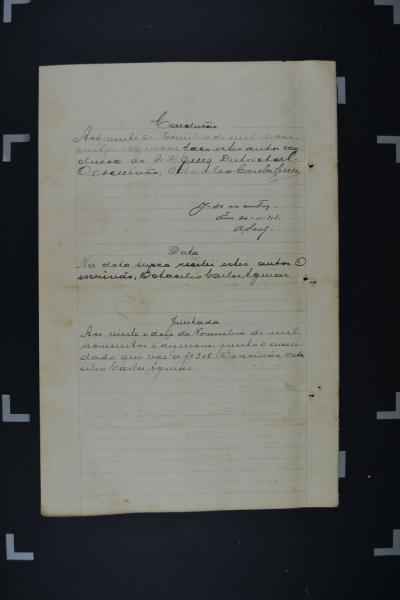 Conclusão
Aos vinte de Novembro de mil nove
centos e dezenove faço estes autos con
clusos ao Sr. Dr. Juiz Districtal.
O escrivão, Botacilio Carlos Aguiar
J. aos autos.
Em 20-11-919.
Data
Na data supra recebi estes autos. O
escrivão, Botacilio Carlos Aguiar
Juntada
Aos vinte e dois de Novembro de mil
novecentos e dezenove, junto o man
dado que vae a fs 308. O escrivão, Bota
cilio Carlos Aguiar